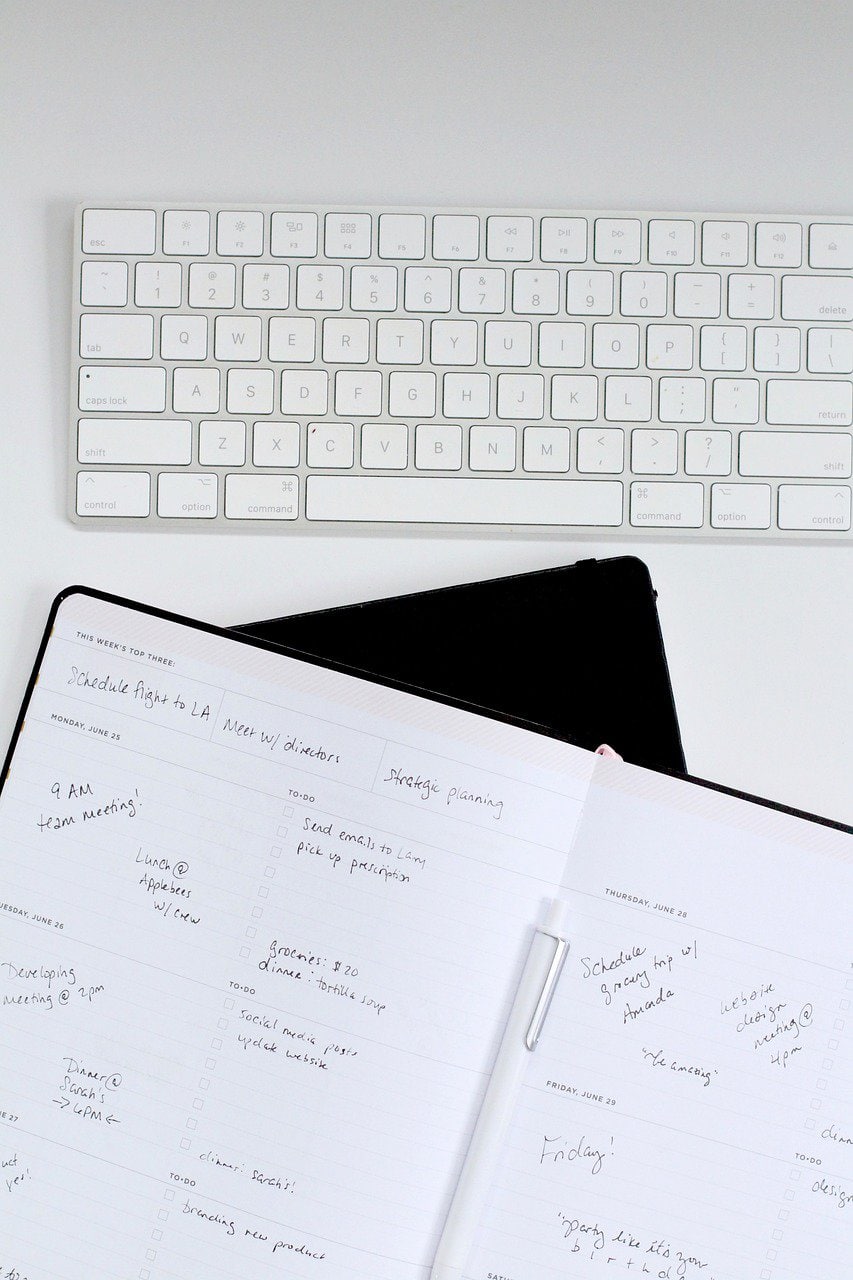 esc F1 F2 F3 F4 F5 F6 F7 F8 F9 F10 F11 F12
~ ! @ # $ % ^ & * ( ) — +
` 1 2 3 4 5 6 7 8 9 0 - = delete
tab Q W E R T Y U I O P { } |
[ ] \
caps lock A S D F G H J K L : "
; ' return
shift Z X C V B N M < > ? shift
, . /
control option command command option control
THIS WEEK'S TOP THREE:
Schedule flight to LA
Meet w/ directors
Strategic planning
MONDAY, JUNE 25
9 AM
team meeting!
Lunch @
Applebees
w/ crew
TO-DO
Send emails to
pick up prescription
groceries: $20
dinner: tortilla soup
UESDAY, JUNE 26
Developing
meeting @ 2pm
Dinner @
Sarah's
→ 6PM ←
TO-DO
Social media posts
update website
dinner: Sarah's!
27
yes!
TO-DO
branding new product
THURSDAY, JUNE 28
Schedule
grocery trip w/
Amanda
website
design
meeting @
4pm
"be amazing"
FRIDAY, JUNE 29
Friday!
"party like it's you
birthd
TO-DO
design
SATU